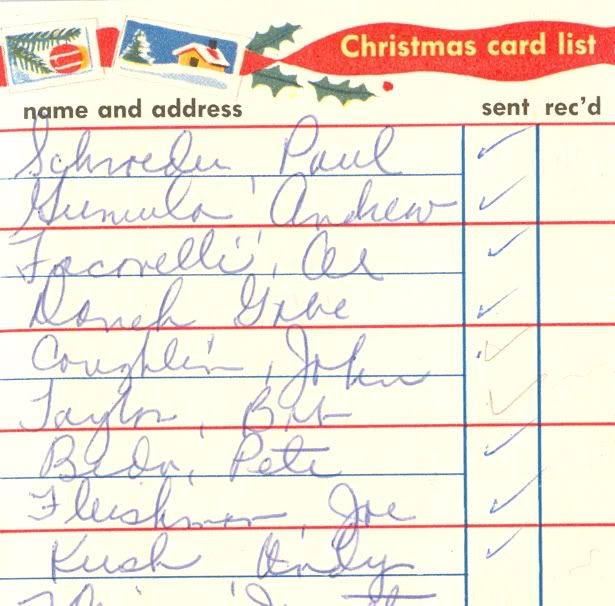 Christmas card list
name and address sent rec'd
Schroeder, Paul
Andrew
Iacovelli, Al
Gabe
Coughlin, John
Taylor, Bob
Pete
Fleishman, Joe
Kush Andy